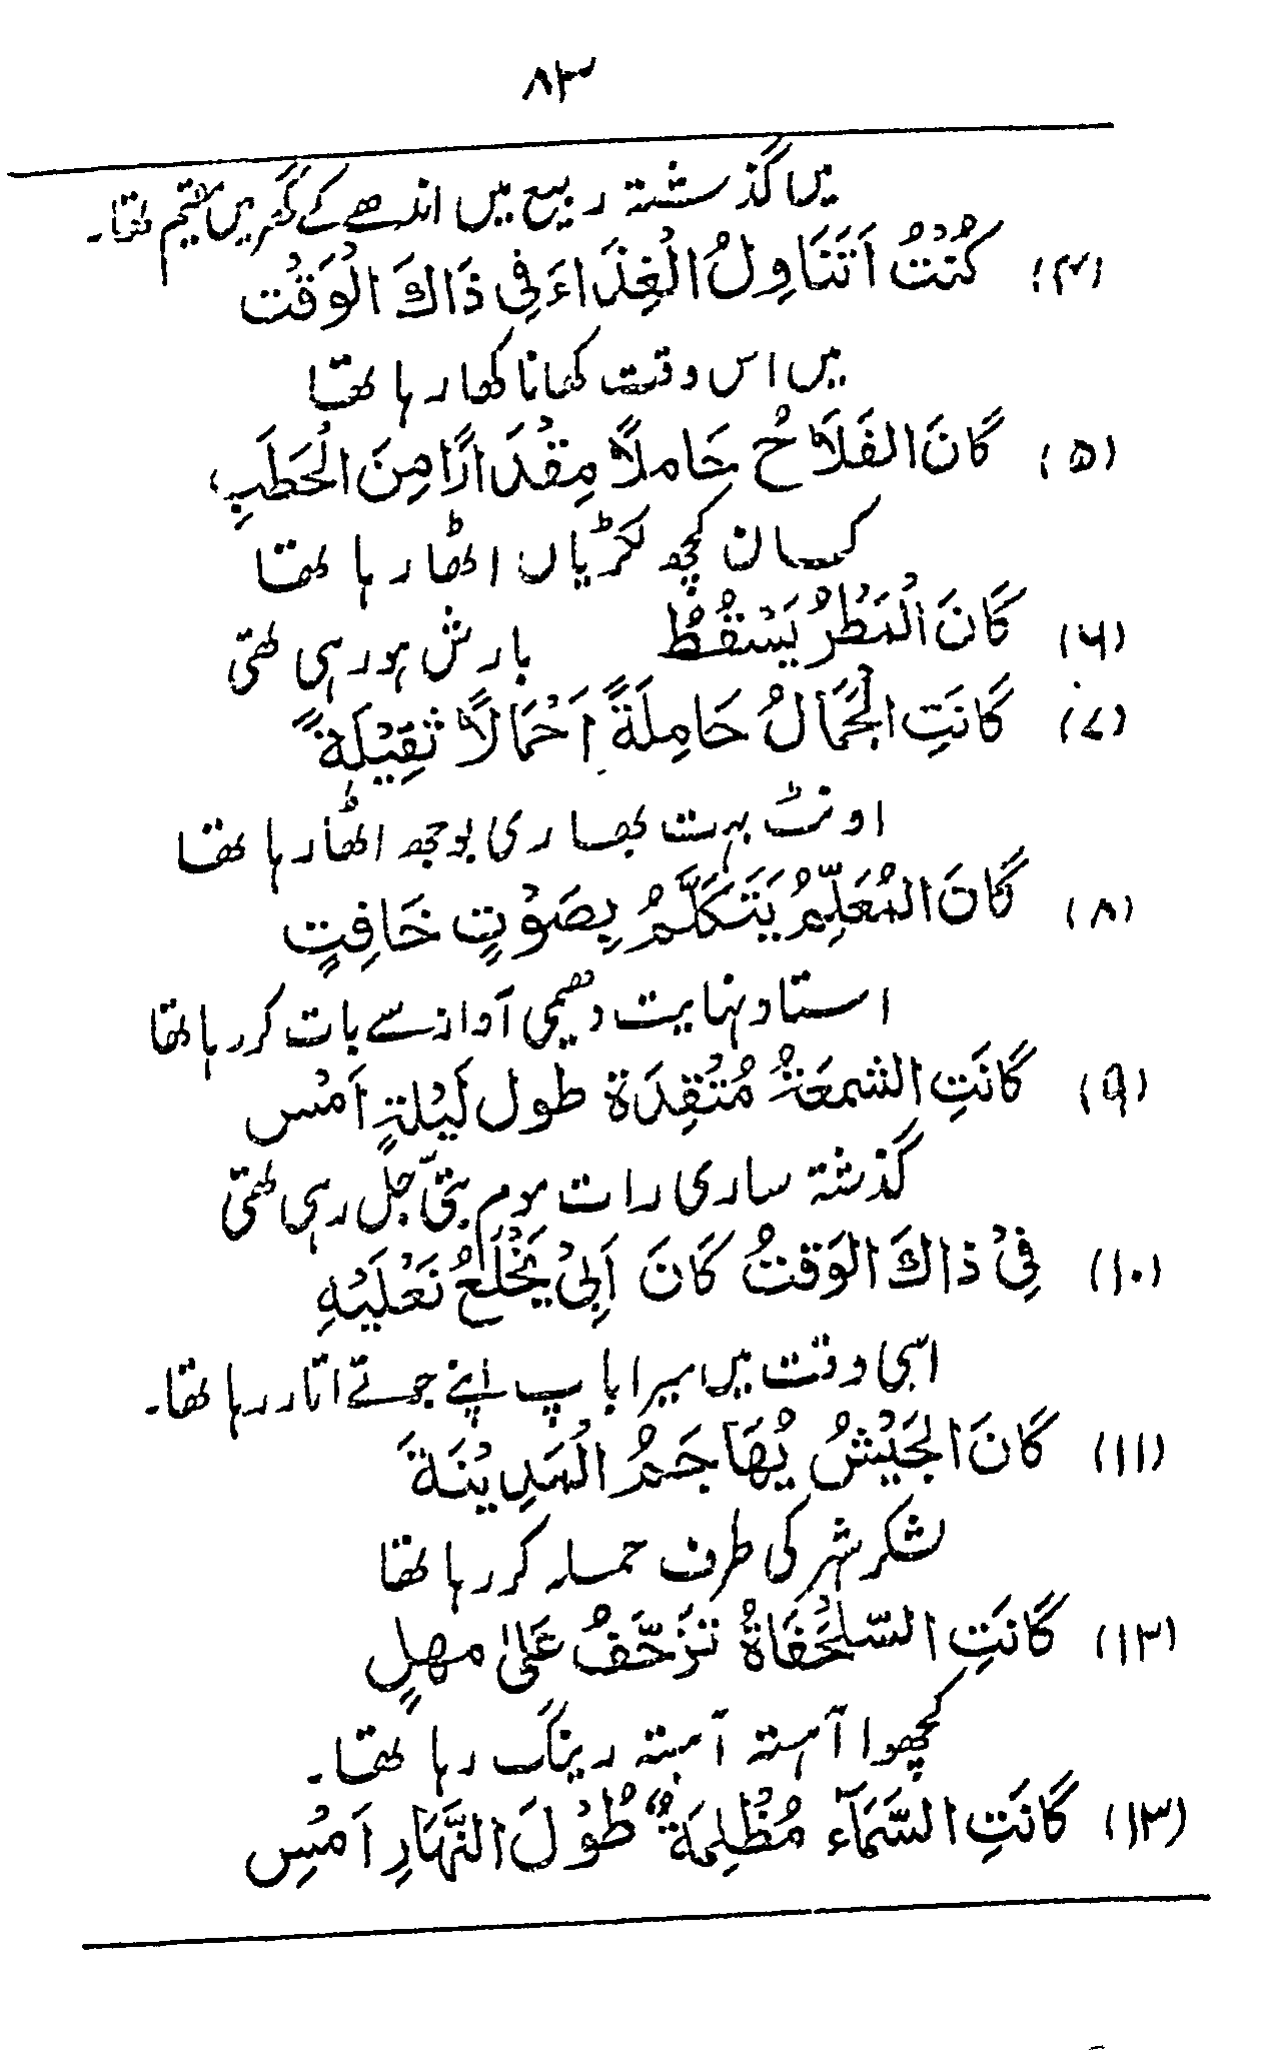 ۸۳
میں گذشتہ ربیع میں اندھے کے گھر میں مقیم تھا۔
(۴) كُنْتُ اَتَنَاوِلُ الْغِذَاءَ فِي ذَاكَ الْوَقْت
میں اس وقت کھانا کھا رہا تھا
(۵) كَانَ الفَلَاحُ حَاملاً مِقْدَارًا مِنَ الْحَطَبِ،
کسان کچھ لکڑیاں اٹھا رہا تھا
(۶) كَانَ الْمَطْرُ يَسْقُطُ بارش ہو رہی تھی
(۷) كَانَتِ الْجَمَالُ حَامِلَةً اَحْمَالاً ثَقِيْلَةً
اونٹ بہت بھاری بوجھ اٹھا رہا تھا
(۸) كَانَ الْمُعَلِّمُ يَتَكَلَّمُ بِصَوْتٍ خَافِتٍ
استاد نہایت دھیمی آواز سے بات کر رہا تھا
(۹) كَانَتِ الشمعَةُ مُتَّقِدَة طول لَيْلةٍ اَمْس
گذشتہ ساری رات موم بتّی جل رہی تھی
(۱۰) فِىْ ذاكَ الوَقتُ كَانَ اَبِىْ يَخْلَعُ نَعْلَيْهِ
اسی وقت میں میرا باپ اپنے جوتے اتار رہا تھا۔
(۱۱) كَانَ الْجَيْشُ يُهَاجَمُ الْمَدِيْنَةَ
لشکر شہر کی طرف حملہ کر رہا تھا
(۱۳) كَانَتِ السّلْحَفَاةُ تَزَحَّفُ عَلىٰ مهلٍ
کچھوا آہستہ آہستہ رینگ رہا تھا۔
(۱۳) كَانَتِ السَّمَآء مُظْلِمَةٌ طُوْلَ النَّهَارِ اَمْسِ